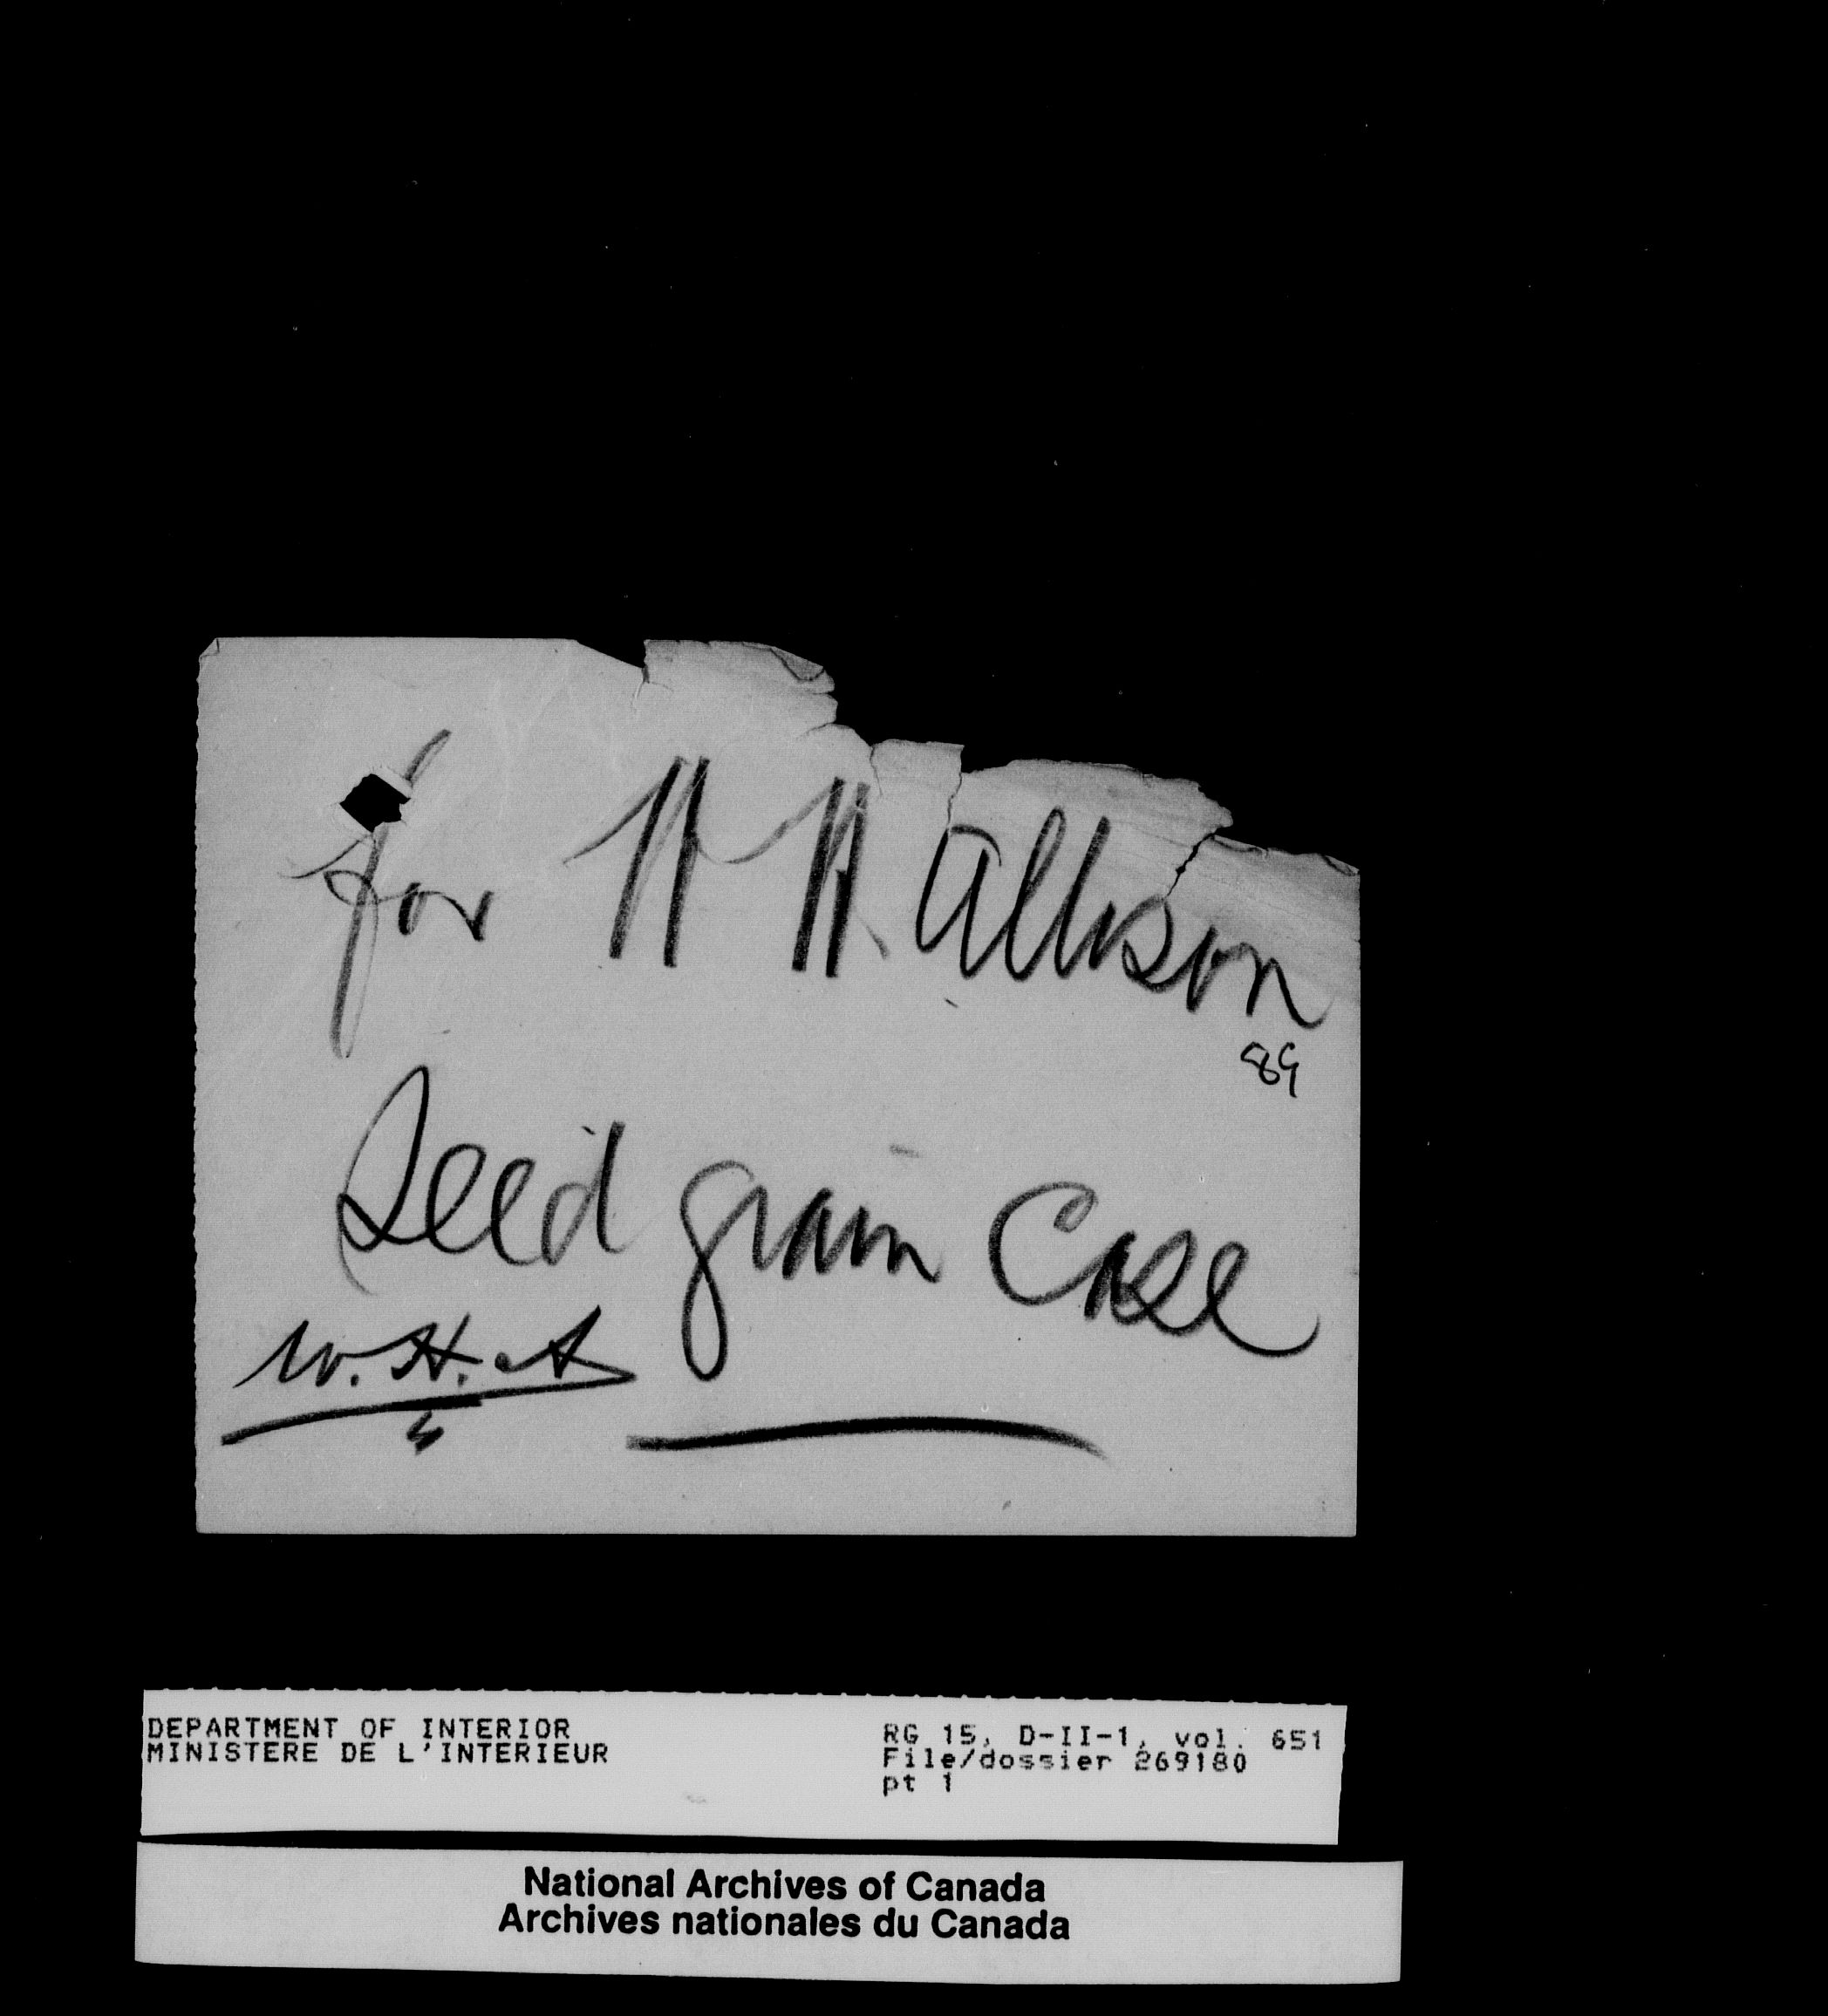 for H H. Allison
89
Seed grain Case
W. H. A
DEPARTMENT OF INTERIOR
MINISTERE DE L'INTERIEUR
RG 15, D-II-1, vol. 651
File/dossier 269180
pt 1
National Archives of Canada
Archives nationales du Canada